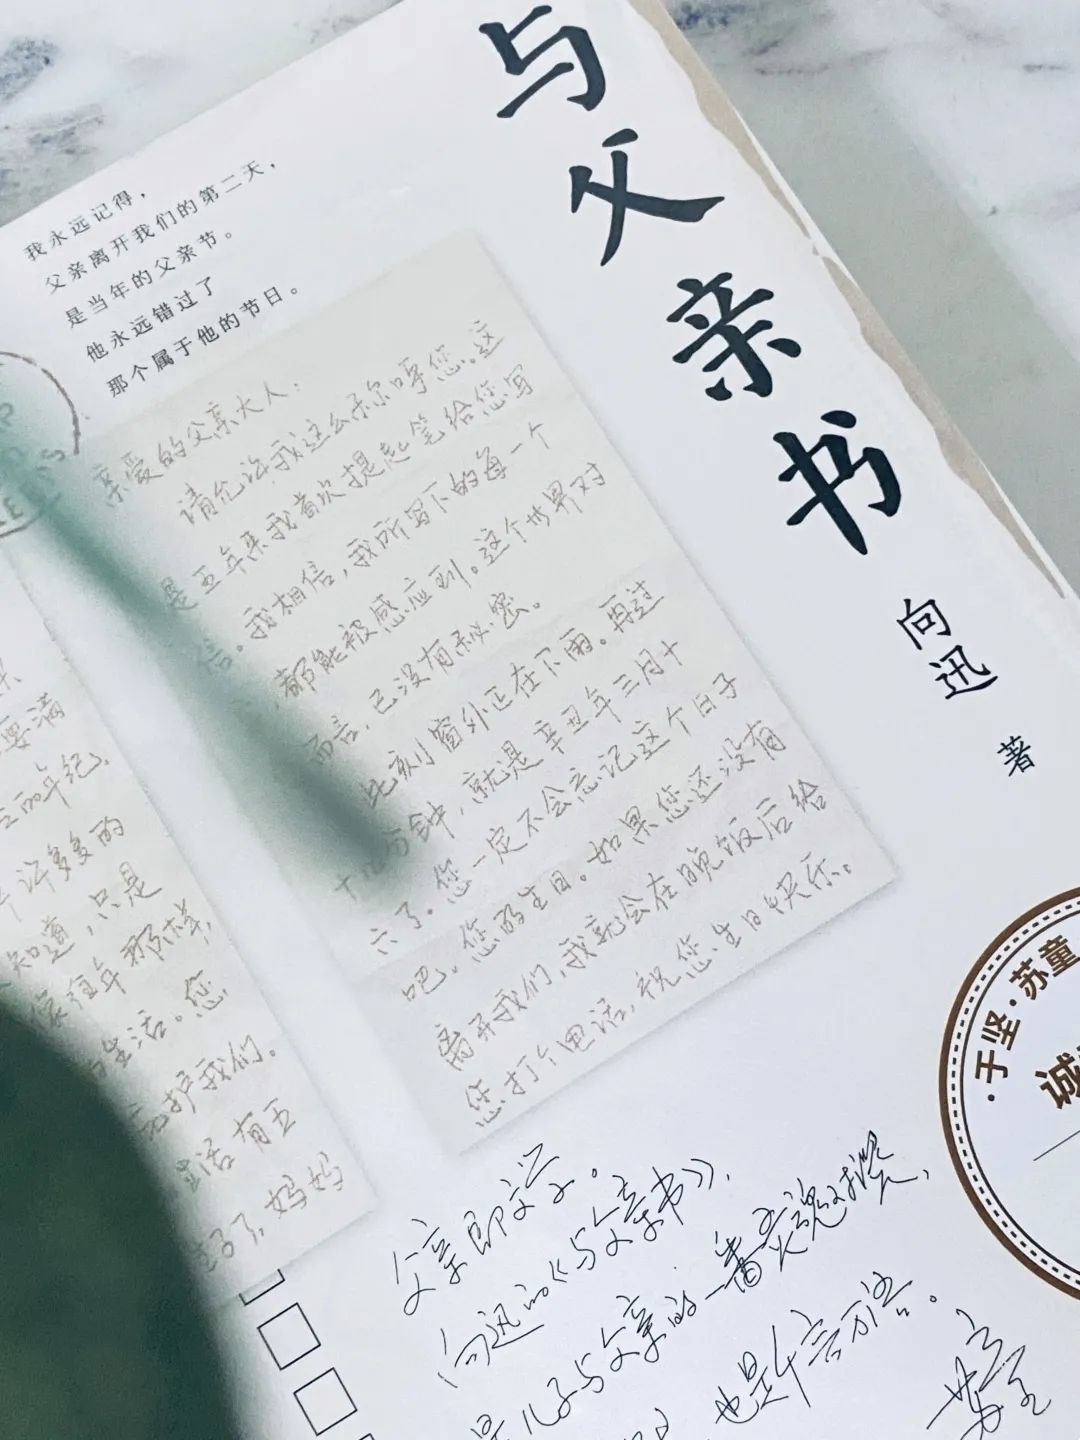 与父亲书
向迅
著
我永远记得，
父亲离开我们的第二天，
是当年的父亲节。
他永远错过了
那个属于他的节日。
亲爱的父亲大人：
请允许我这么称呼您。这
是五年来我首次提起笔给您写
信。我相信，我所写下的每一个
都能被感应到。这个世界对
而言，已没有秘密。
此刻窗外正在下雨。再过
十几分钟，就是辛丑年三月十
六了。您一定不会忘记这个日子
吧。您的生日。如果您还没有
离开我们，我就会在晚饭后给
您打个电话，祝您生日快乐。
要满
年纪，
许多多的
知道，只是
往年那样，
生活。您
护我们。
生活有五
妈妈
·于坚·苏童
诚
父亲即文学。
向迅的《与父亲书》，
是儿子与父亲的一番灵魂对谈，
也是千言万语。
苏童